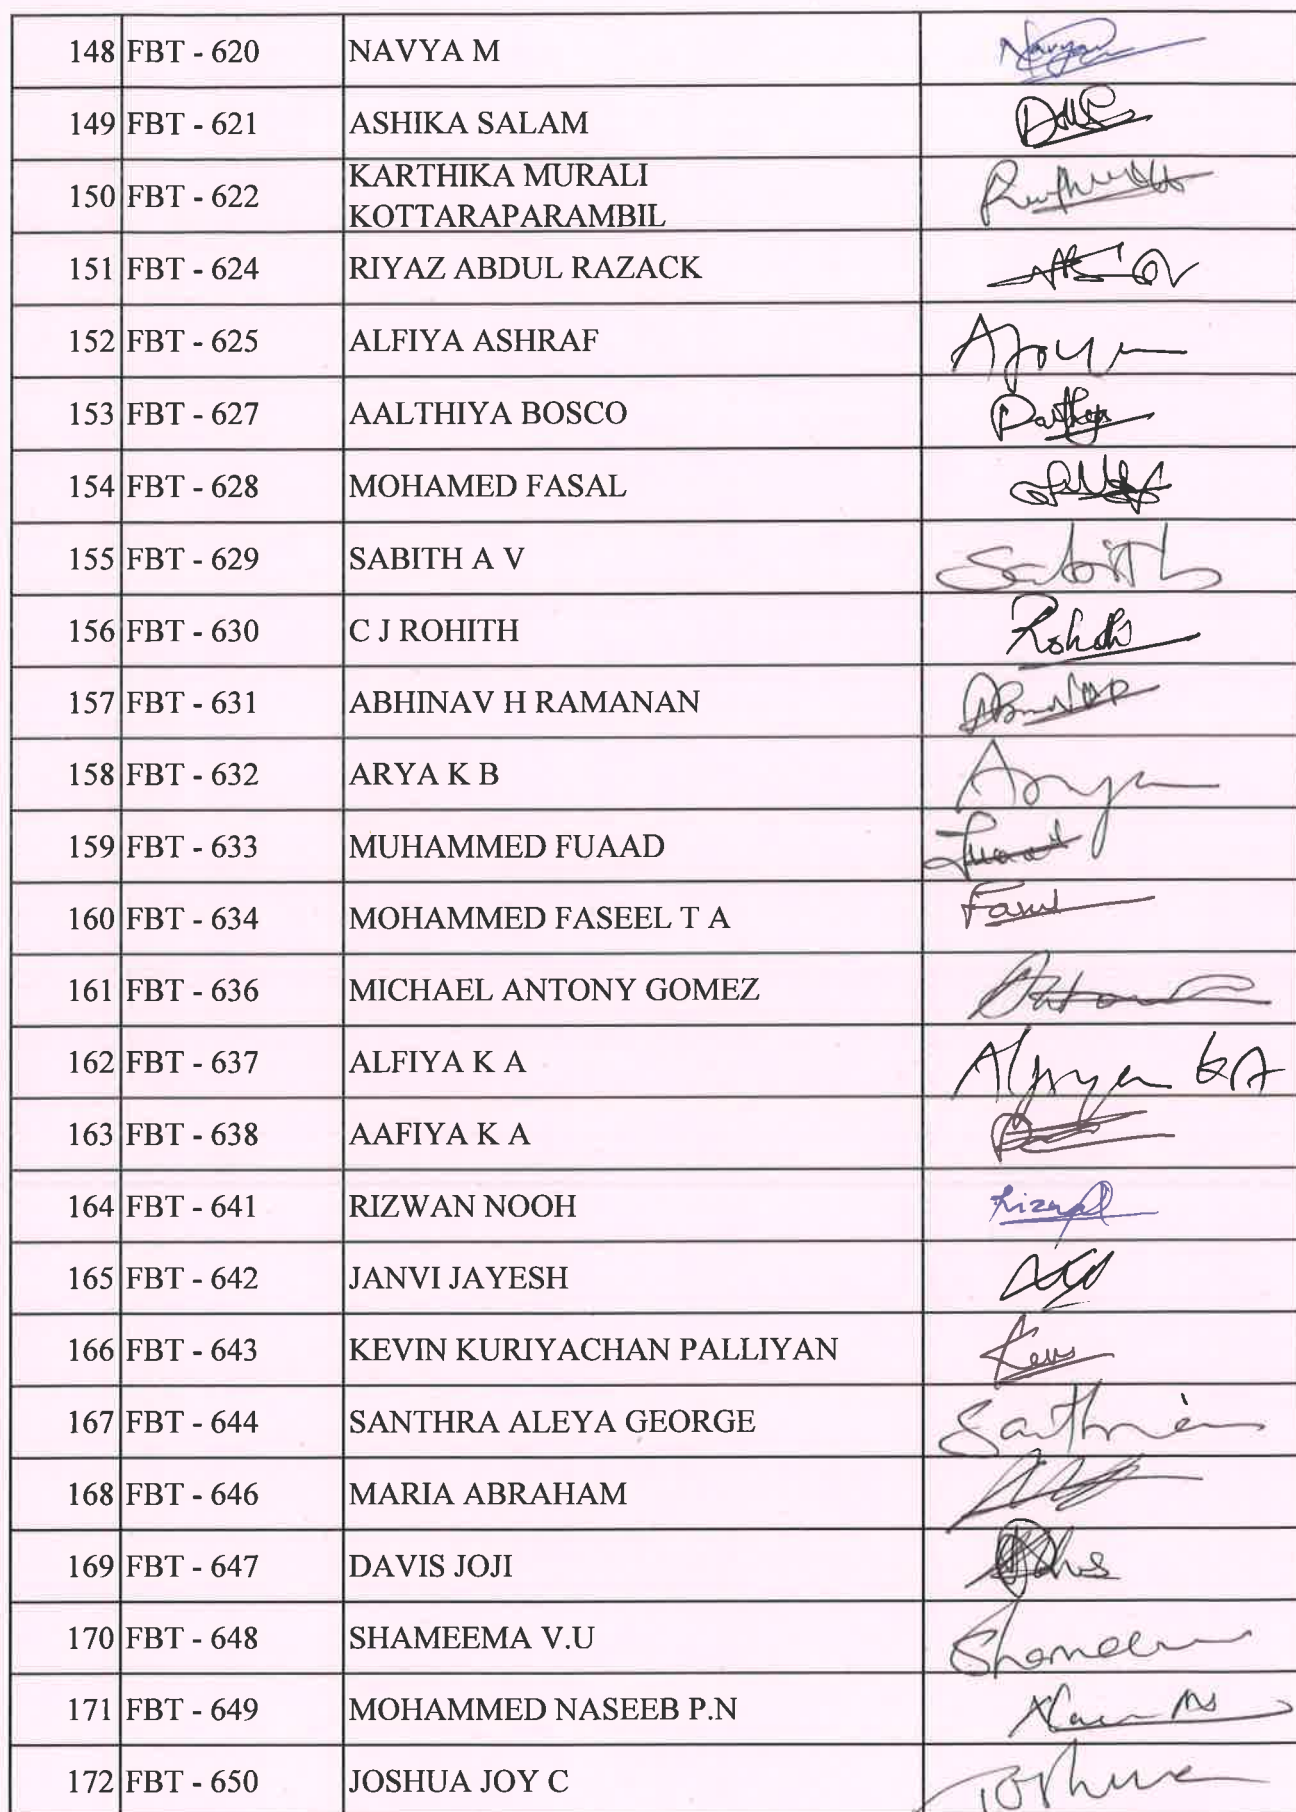 148 FBT - 620 NAVYA M Navya
149 FBT - 621 ASHIKA SALAM
150 FBT - 622 KARTHIKA MURALI
KOTTARAPARAMBIL
151 FBT - 624 RIYAZ ABDUL RAZACK
152 FBT - 625 ALFIYA ASHRAF
153 FBT - 627 AALTHIYA BOSCO
154 FBT - 628 MOHAMED FASAL
155 FBT - 629 SABITH A V Sabith
156 FBT - 630 C J ROHITH
157 FBT - 631 ABHINAV H RAMANAN
158 FBT - 632 ARYA K B Arya
159 FBT - 633 MUHAMMED FUAAD
160 FBT - 634 MOHAMMED FASEEL T A
161 FBT - 636 MICHAEL ANTONY GOMEZ
162 FBT - 637 ALFIYA K A
163 FBT - 638 AAFIYA K A
164 FBT - 641 RIZWAN NOOH
165 FBT - 642 JANVI JAYESH
166 FBT - 643 KEVIN KURIYACHAN PALLIYAN
167 FBT - 644 SANTHRA ALEYA GEORGE
168 FBT - 646 MARIA ABRAHAM
169 FBT - 647 DAVIS JOJI
170 FBT - 648 SHAMEEMA V.U
171 FBT - 649 MOHAMMED NASEEB P.N
172 FBT - 650 JOSHUA JOY C Joshua